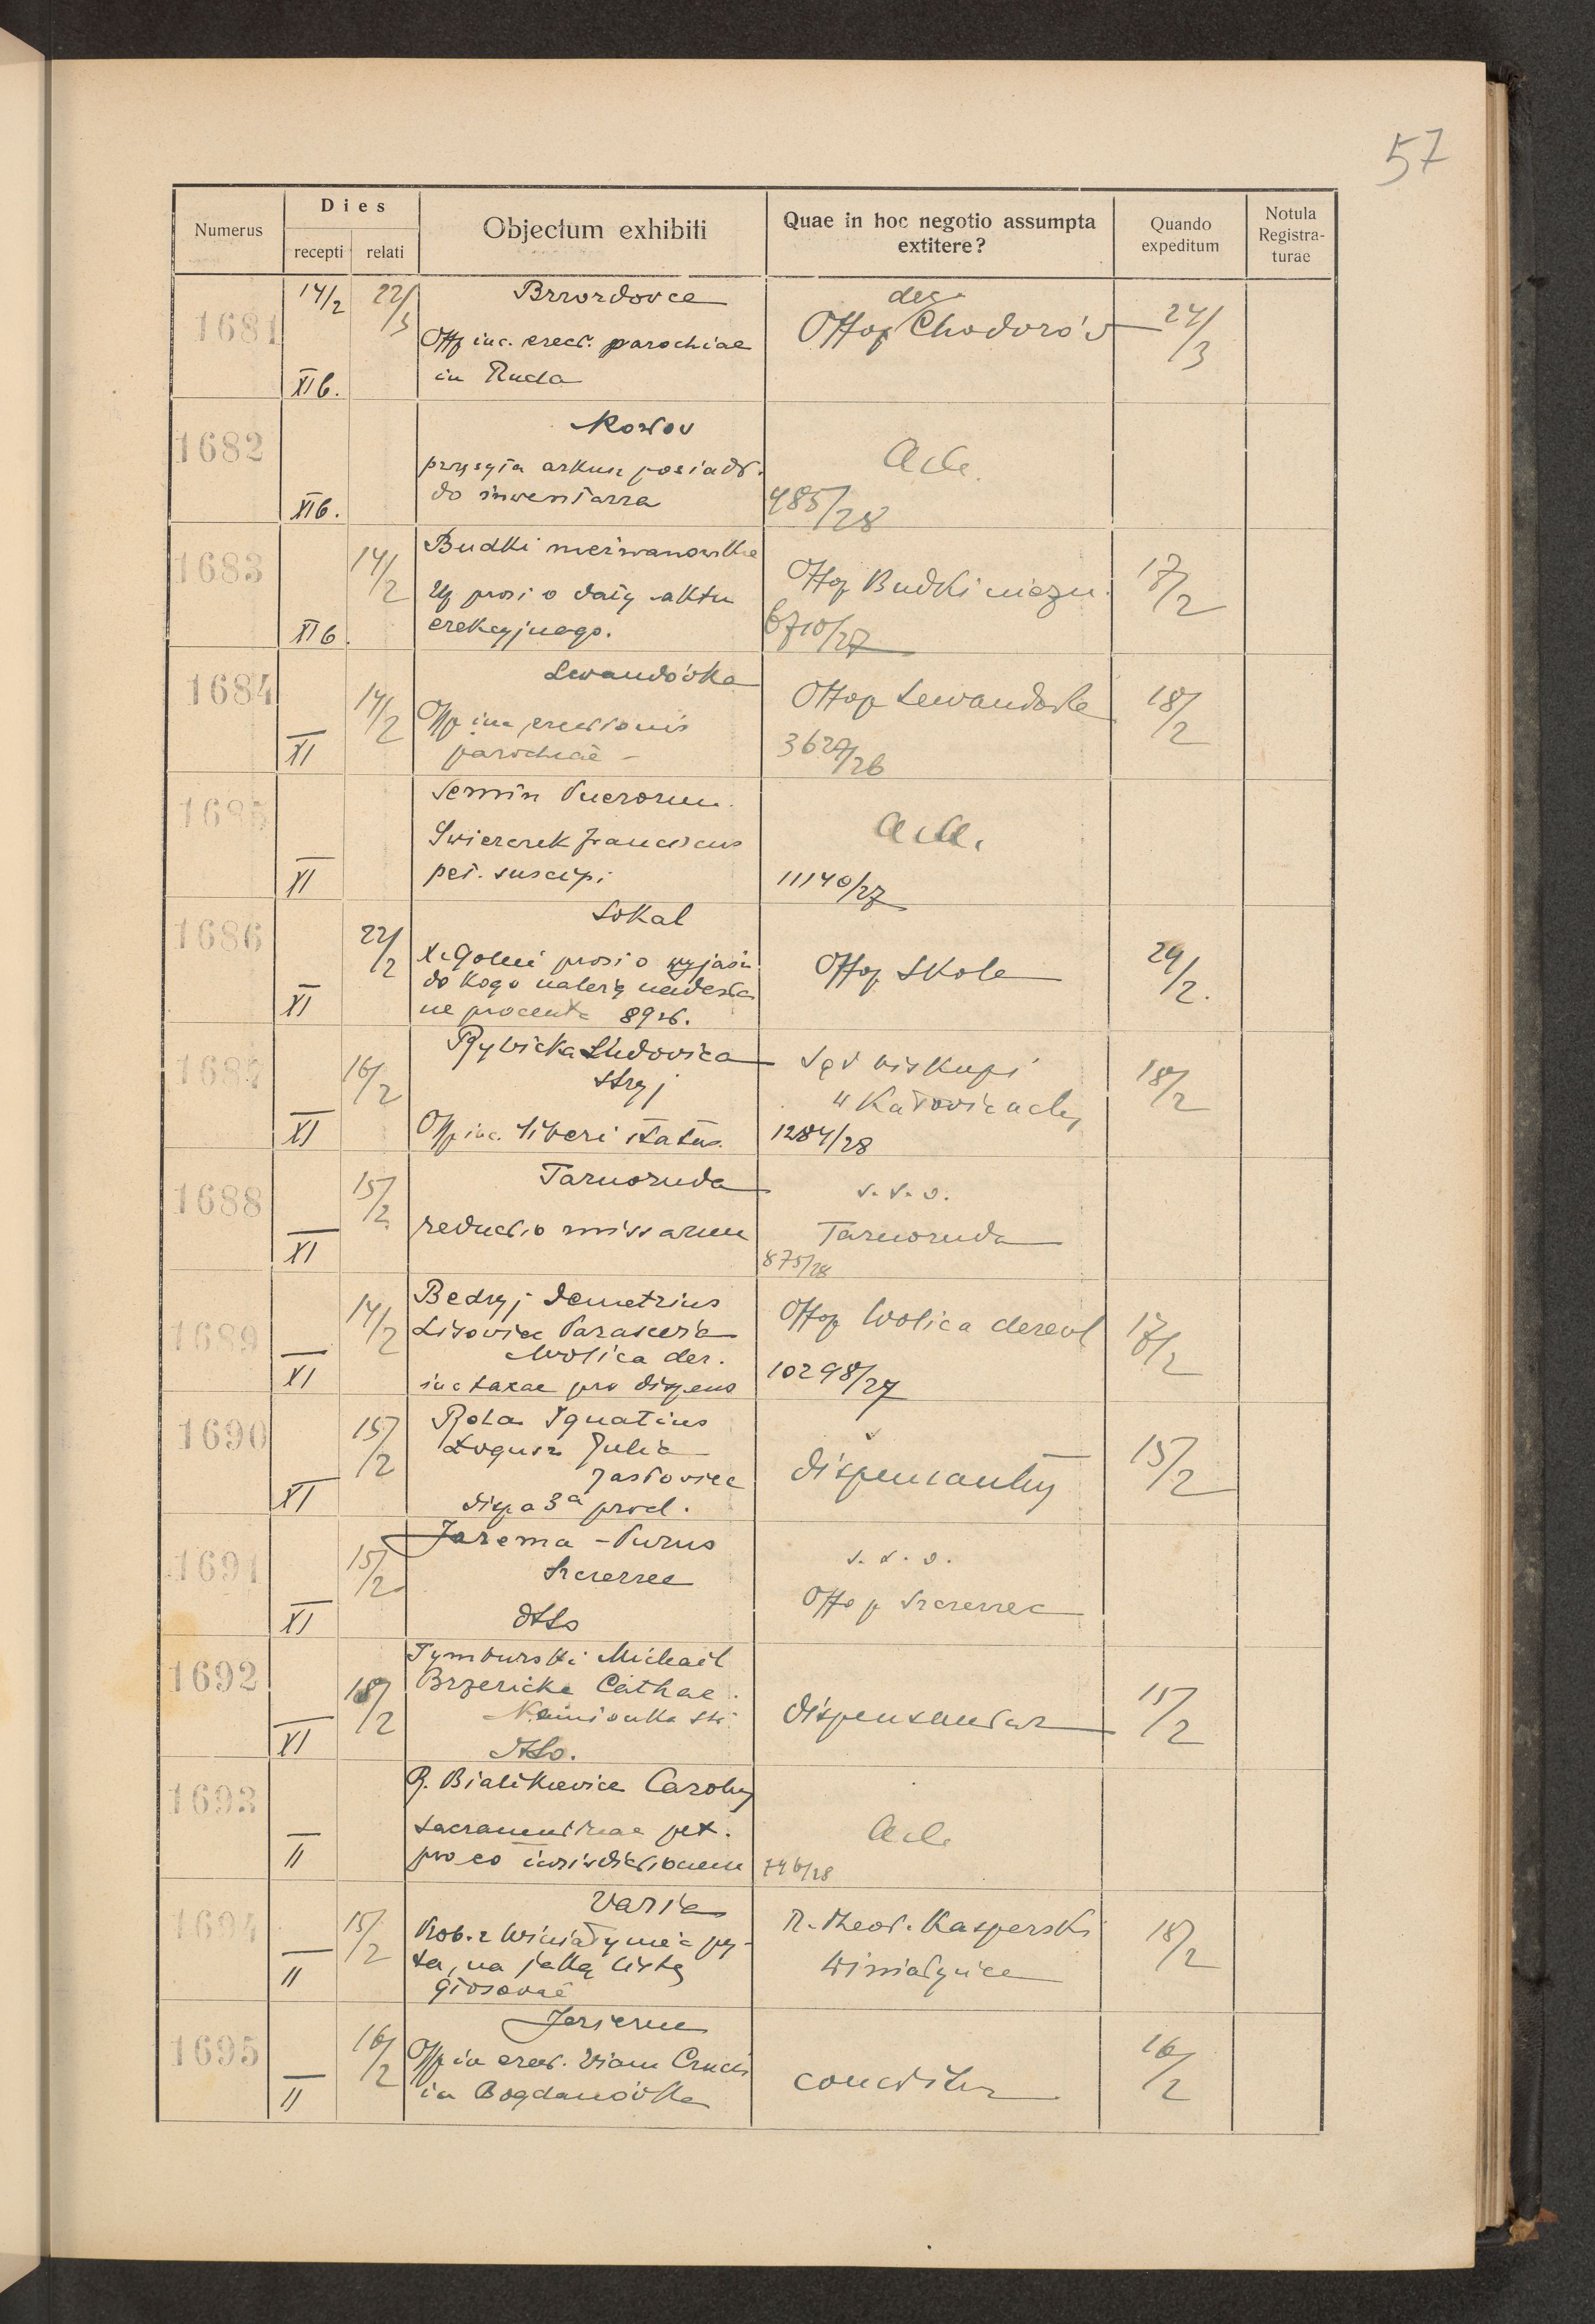 57
Numerus
Dies
recepti relati
Objectum exhibiti
Quae in hoc negotio assumpta
extitere?
Quando
expeditum
Notula
Registra-
turae
1681 14/2 22/3 XI b.
Brzozdovce
Offp inc. erect. parochiae
in Ruda
dec.
Offop Chodorów
24/3
1682 XI b.
przysyła arkusz posiadł.
do inwentarza
Acta
485/28
1683 14/2 XI b.
Budki nieznanowskie
Up prosi o datę aktu
erekcyjnego.
Offop Budki niezn.
6710/27
17/2
1684 14/2 XI
Lewandówka
Offp inc erectionis
parochiae -
Offop Lewandówka
3627/26
18/2
1685 XI
Semin Puerorum
Swierczek Franciscus
pet. suscipi
Acta.
11140/27
1686 22/2 XI
Sokal
prosi o wyjaśn.
do kogo należą nadesła
ne procenta 89 zł.
Offop Skole
24/2.
1687 16/2 XI
Rybicka Ludovica
Stryj
Offp inc. liberi status.
Sąd biskupi
w Katowicach
1284/28
18/2
1688 15/2 XI
Tarnoruda
reductio missarum
s. s. o.
Tarnoruda
875/28
1689 14/2 XI
Bedryj Demetrius
Lisoviec Parascevia
Wolica der.
inc taxae pro dispens
Offop Wolica derewl
10298/27
17/2
1690 15/2 XI
Rola Ignatius
Łogusz Julia
Jasłoviec
disp a 3ª procl.
dispensantur
15/2
1691 15/2 XI
Jarema - Purus
Szczerzec
dtto
s. s. o.
Offop Szczerzec
1692 18/2 XI
Tymburski Michael
Brzezicka Cathae.
Kamionka str.
dtto.
dispensantur
15/2
1693 II
R. Bialikievicz Carolus
Sacramentinae pet.
pro eo iurisdictionem
Acta
746/28
1694 15/2 II
Varia
Prob. z Winiatyniec py-
ta, na jaką listę
głosować
R. Theod. Kasperski
Winiatyńce
18/2
1695 16/2 II
Jezierna
Offp in erect. Viam Crucis
in Bogdanówka
conceditur
16/2